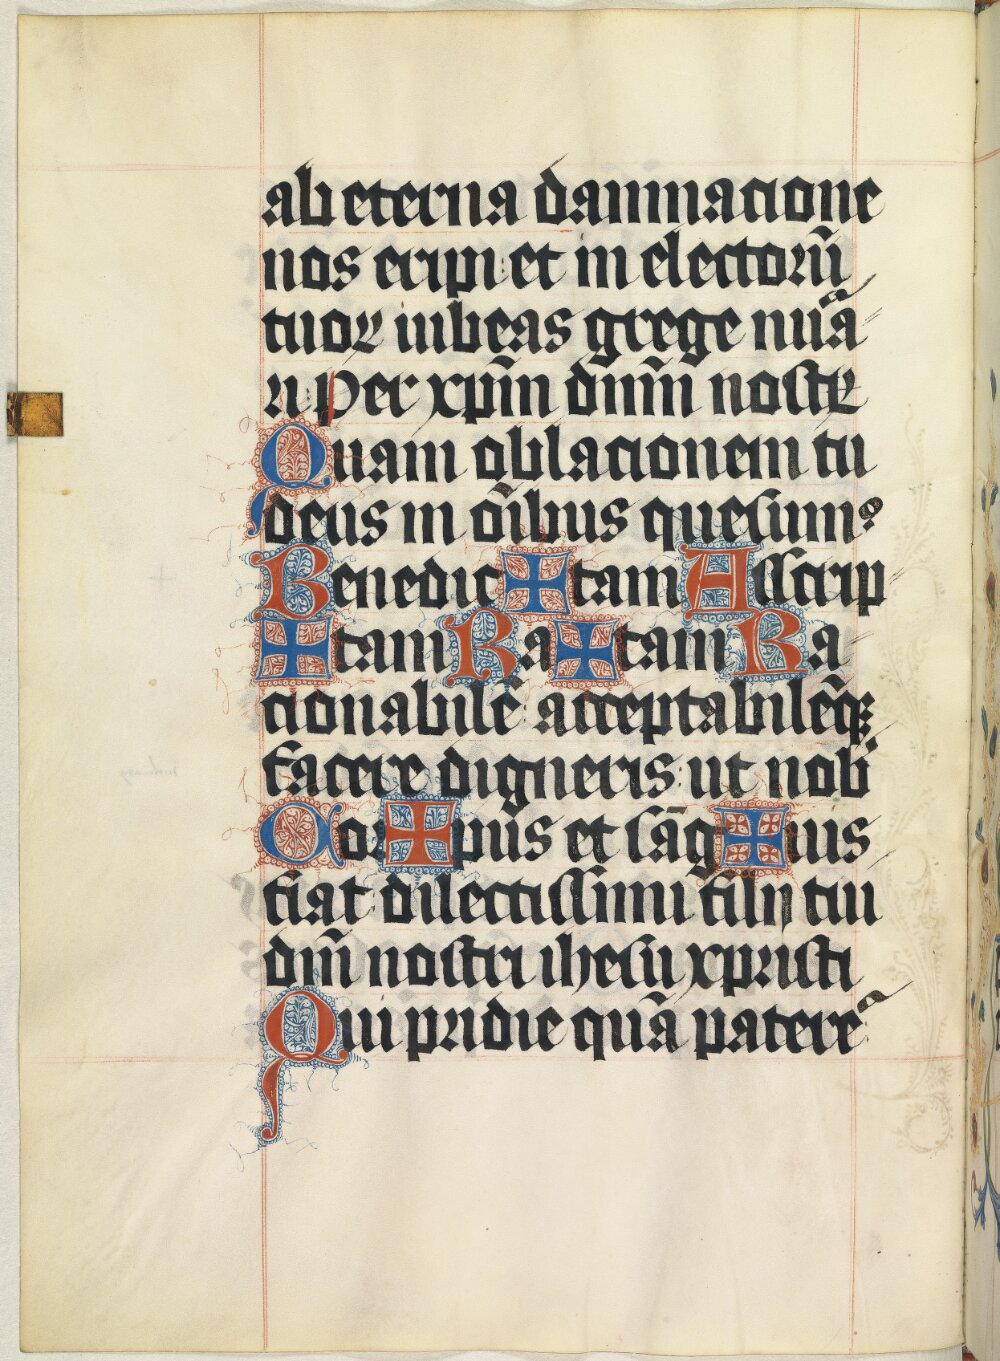 ab eterna damnacione
nos eripi et in electorū
tuoꝝ iubeas grege nūā
ri Per xpm̄ dnm̄ nostꝝ
Quam oblacionem tu
deus in oībus quesumꝰ
Benedic✠tam Asscrip
✠tam Ra✠tam Ra
cionabile acceptabilēqꝫ
facere digneris ut nob
Cor✠pus et sāg✠uis
fiat dilectissimi filij tui
dnī nostri ihesu xpristi
Qui pridie quā patere